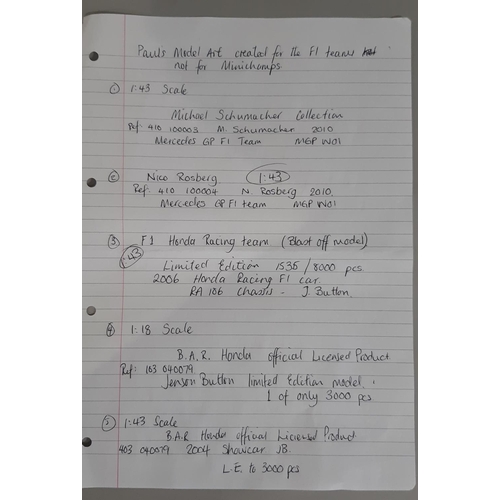 Paul's Model Art created for the F1 teams
not for Minichamps
① 1:43 Scale
Michael Schumacher Collection
Ref: 410 100003 M. Schumacher 2010
Mercedes GP F1 Team MGP W01
② Nico Rosberg 1:43
Ref: 410 100004 N. Rosberg 2010.
Mercedes GP F1 team MGP W01
③ F1 Honda Racing team (Blast off model)
1:43
Limited Edition 1535/8000 pcs
2006 Honda Racing F1 car
RA 106 Chassis - J Button.
④ 1:18 Scale
B.A.R. Honda official Licensed Product
Ref: 103 040079
Jenson Button limited Edition model.
1 of only 3000 pcs
⑤ 1:43 Scale
B.A.R Honda official Licensed Product
403 040079 2004 Showcar JB.
L.E. to 3000 pcs